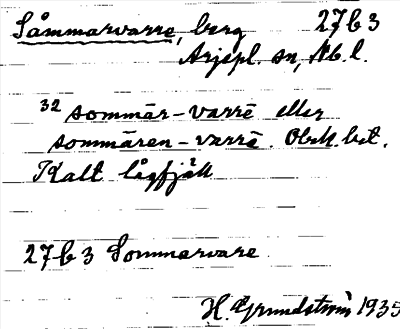 Såmmarvarre, berg 27b3
Arjepl. sn, Nb. l.
32 sommār-varrē eller
sommāren-varrē. Obek. bet.
Kalt lågfjäll
27b3 Sommarvare
H. Grundström 1935